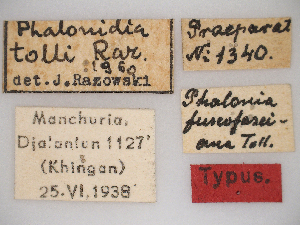 Phalonidia
tolli Raz.
1960
det. J. Razowski
Praeparat
№ 1340.
Manchuria,
Djalantun 1127'
(Khingan)
25.VI.1938
Phalonia
fuscofasci-
ana Toll.
Typus.